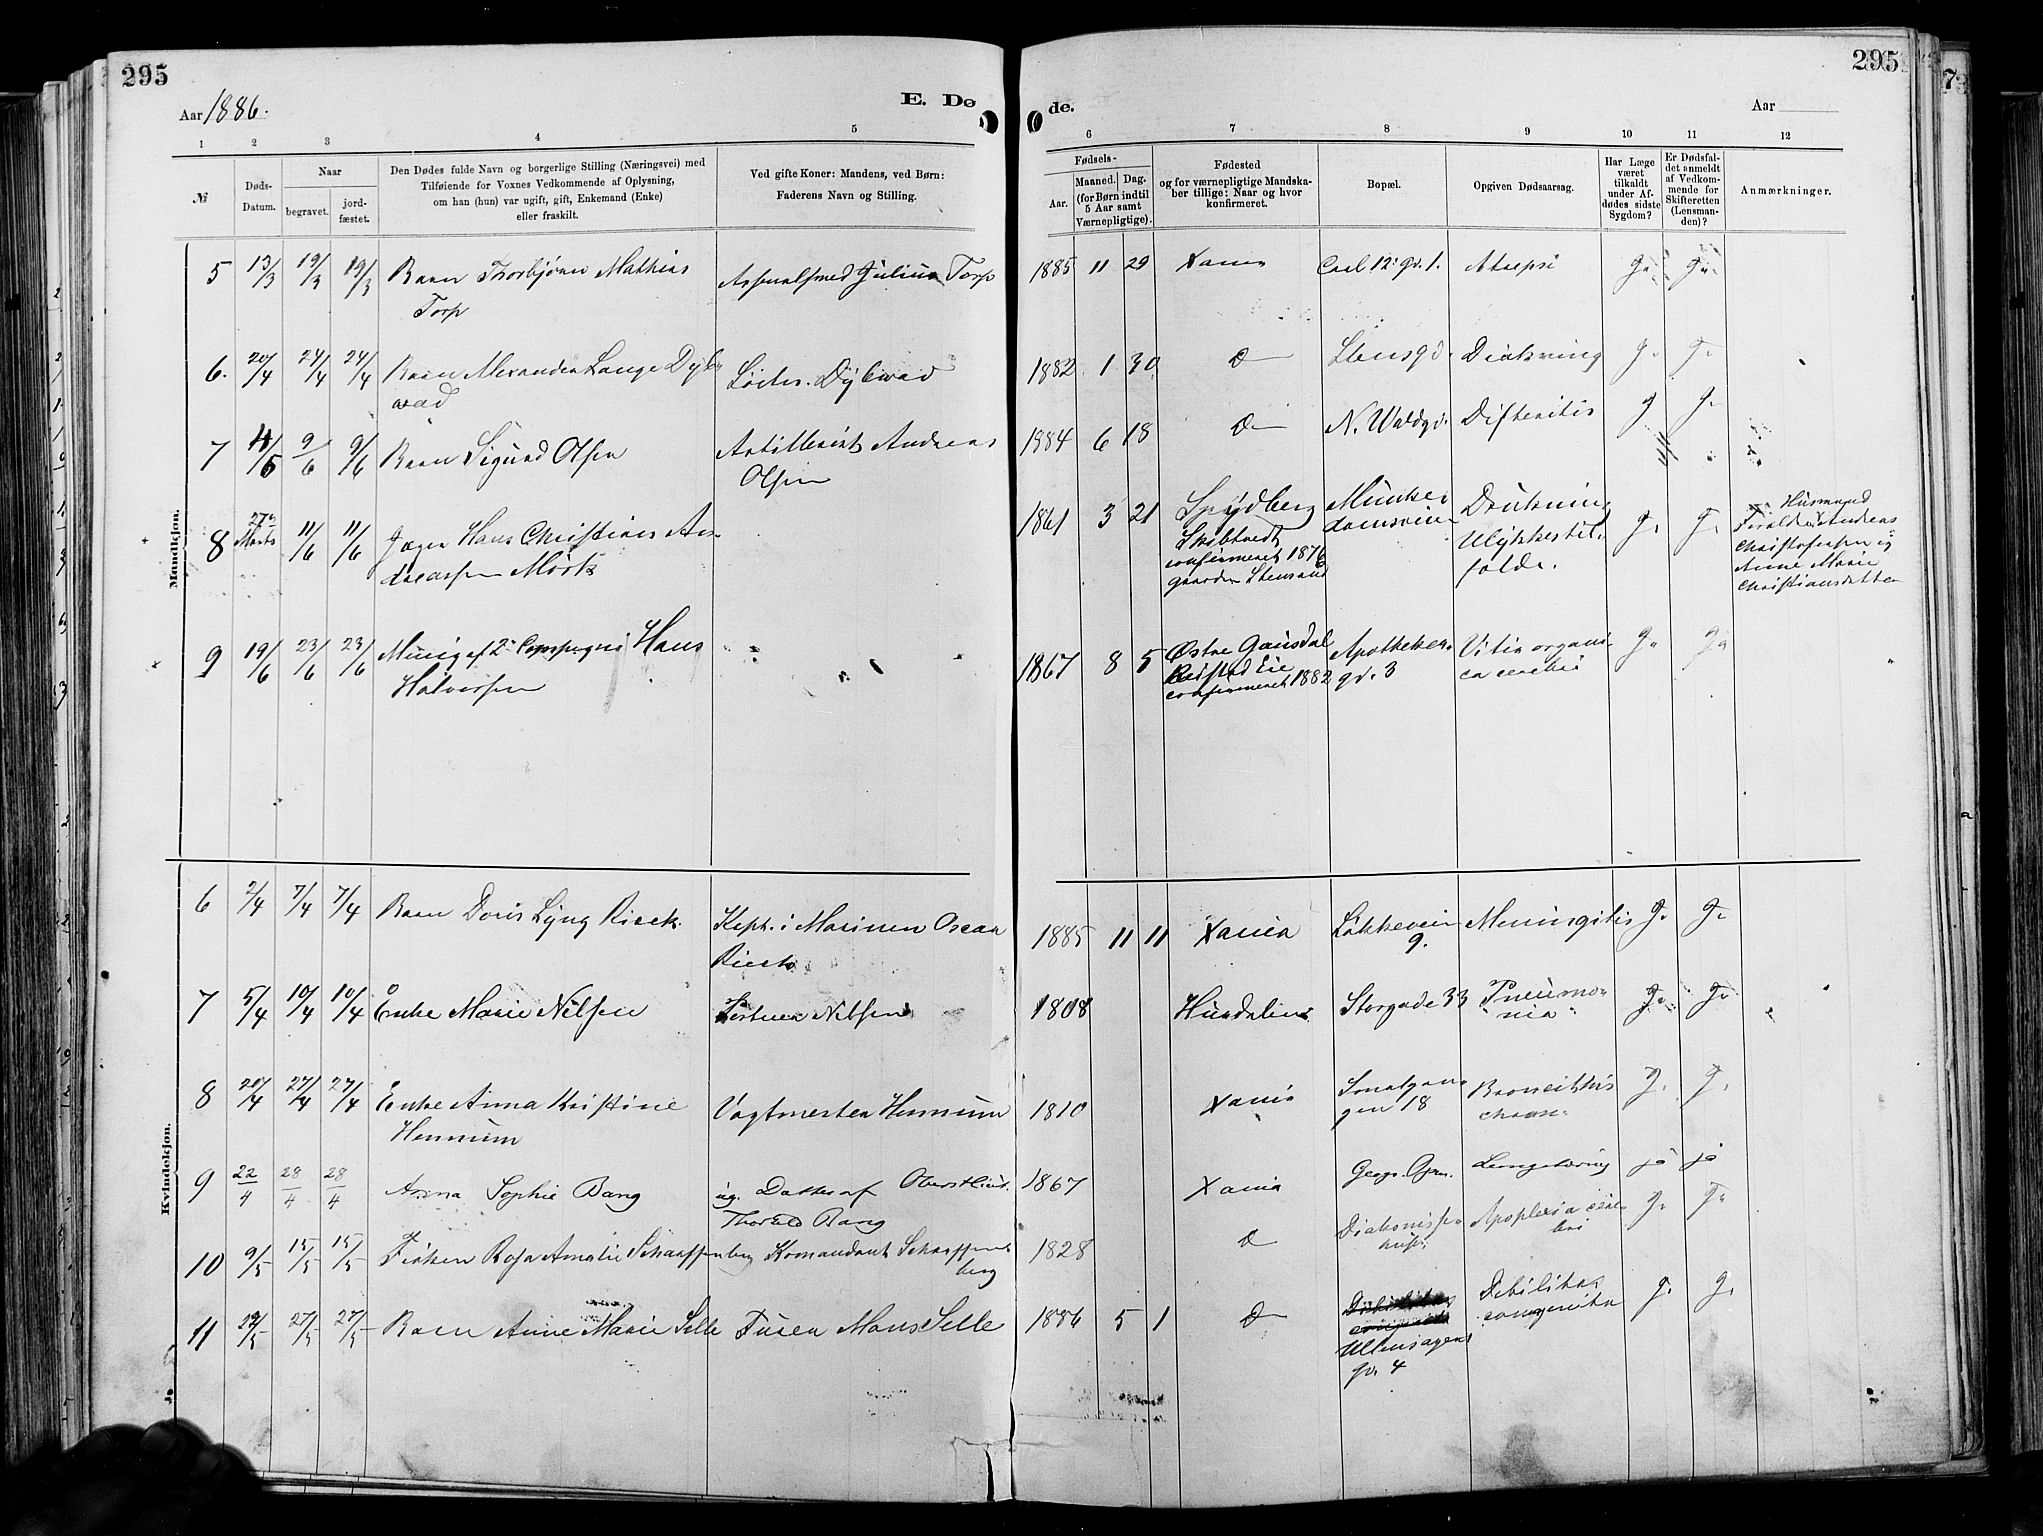 295
295
Aar 1886.
E. Dø
de.
Aar
1 2 3 4 5
6 7 8 9 10 11 12
№
Døds-
Datum.
Naar
begravet.
jord-
fæstet.
Den Dødes fulde Navn og borgerlige Stilling (Næringsvei) med
Tilføiende for Voxnes Vedkommende af Oplysning,
om han (hun) var ugift, gift, Enkemand (Enke)
eller fraskilt.
Ved gifte Koner: Mandens, ved Børn:
Faderens Navn og Stilling.
Fødsels-
Aar.
Maaned. Dag.
(for Børn indtil
5 Aar samt
Værnepligtige).
Fødested
og for værnepligtige Mandska-
ber tillige: Naar og hvor
konfirmeret.
Bopæl.
Opgiven Dødsaarsag.
Har Læge
været
tilkaldt
under Af-
dødes sidste
Sygdom?
Er Dødsfal-
det anmeldt
af Vedkom-
mende for
Skifteretten
(Lensman-
den)?
Anmærkninger.
Mandkjøn.
5 13/3 19/3 19/3 Barn Thorbjørn Mathias
Torp
Arsenalsmed Julius Torp
1885 11 29 Xania Carl 12' gd. 1. Atrepsi Ja Ja
6. 20/4 24/4 24/4 Barn Alexander Lange Dyb
wad
Løitn. Dybwad
1882 1 30 D Stensgd.
J. J.
7 9/6 9/6 Barn Sigurd Olsen
Artillerist Andreas
Olsen
1884 6 18 D N. Waldgd. Difteritis J J.
8 Marts 11/6 11/6 Jæger Hans Christian An-
dreassen Mørk
1861 3 21 Spydberg
Skibtvedt
confirmeret 1876
gaarden Stensrud
Munke-
damsveien
Drukning
Ulykkestil-
fælde.
J. J.
Husmand
Forældre: Andreas
Christofersen og
Anne Marie
Christiansdatter
9 19/6 23/6 23/6 Menig af 2' Compagni Hans
Halvorsen
1867 8 5 Østre Gausdal
Eie
confirmeret 1882
Apotheker
gd. 3
Vitia organi-
ca cerebri
Ja Ja
Kvindekjøn.
6 2/4 7/4 7/4 Barn Doris Lyng Rieck.
Kapt. i Marinen Oscar
Rieck
1885 11 11 Xania Løkkeveien
9.
Meningitis J. J.
7 5/4 10/4 10/4 Enke Marie Nilsen
Nilsen
1808 Hurdalen Storgade 33 Pneumo-
nia
J. J.
8 20/4 27/4 27/4 Enke Anna Kristine
Hennum
Vagtmester Hennum
1810 Xania Smalgan-
gen 18
chron.
J. J.
9 22/4 28/4 28/4 Anna Sophie Bang
ug. Datter af Oberstlieut.
Thorvald Bang
1867 Xania Geogr. Opm. Lungetæring ja ja
10 9/5 15/5 15/5 Frøken Rosa Amalie Scharffenberg Komandant Scharffen-
berg
1828 D Diakonisse-
hus.
Apoplexia cere-
bri
J. Ja
11 27/5 27/5 Barn Anne Marie Selle Furer Mons Selle
1886 5 1 D
Ullensagers
gd. 4
Debilitas
congenita
J. J.